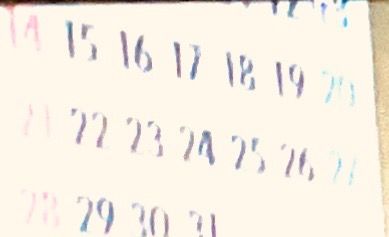 12 13
14 15 16 17 18 19 20
21 22 23 24 25 26 27
28 29 30 31